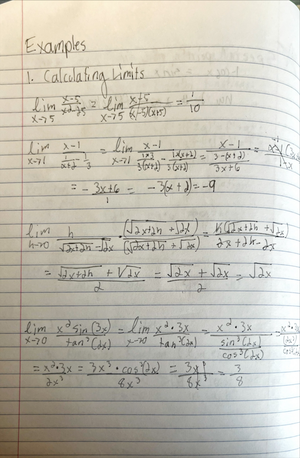 Examples
1. Calculating Limits
lim x→5 x-5/x²-25 = lim x→5 x+5/(x-5)(x+5) = 1/10
lim x→1 x-1/(1/(x+2) - 1/3) = lim x→1 x-1/(- 1(x+2)/3(x+2)) = x-1/(3-(x+2)/3x+6)
= -3x+6/1 = -3(x+2) = -9
lim h→0 h/(√2x+2h - √2x) · (√2x+2h + √2x)/(√2x+2h + √2x) = h(√2x+2h + √2x)/2x+2h-2x
= √2x+2h + √2x/2 = √2x + √2x/2 = √2x
lim x→0 x² sin(3x)/tan³(2x) = lim x→0 x²·3x/tan³(2x) = x²·3x/(sin³(2x)/cos³(2x))
= x²·3x/2x³ = 3x³·cos³(2x)/8x³ = 3x/8x = 3/8